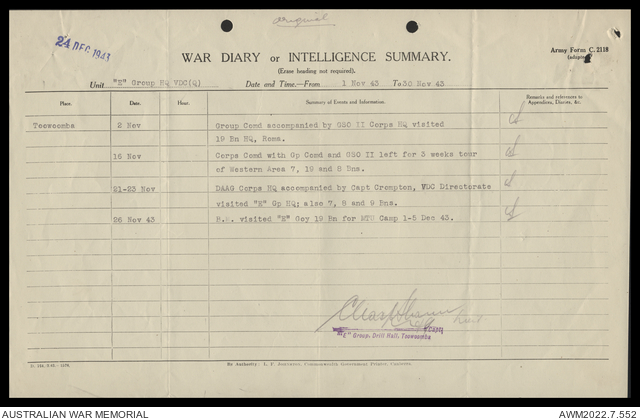 original
24 DEC 1943
WAR DIARY or INTELLIGENCE SUMMARY.
(Erase heading not required).
Army Form C. 2118
Unit "E" Group HQ VDC(Q) Date and Time.—From 1 Nov 43 To 30 Nov 43
Place. Date. Hour. Summary of Events and Information. Remarks and references to Appendices, Diaries, &c.
Toowoomba 2 Nov Group Comd accompanied by GSO II Corps HQ visited
19 Bn HQ, Roma.
15 Nov Corps Comd with Gp Comd and GSO II left for 3 weeks tour
of Western Area 7, 19 and 8 Bns.
21-23 Nov DAAG Corps HQ accompanied by Capt Crompton, VDC Directorate
visited "E" Gp HQ; also 7, 8 and 9 Bns.
26 Nov 43 visited Coy 19 Bn for MTU Camp 1-5 Dec 43.
"E" Group, Drill Hall, Toowoomba
By Authority: L. F. Johnston, Commonwealth Government Printer, Canberra
AUSTRALIAN WAR MEMORIAL
AWM2022.7.552